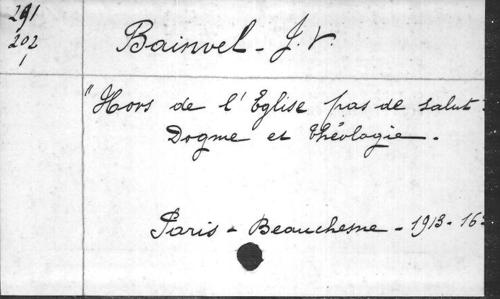 291
202
1
Bainvel - J. V.
"Hors de l'Eglise pas de salut.
Dogme et théologie.
Paris - Beauchesne - 1913 - 16